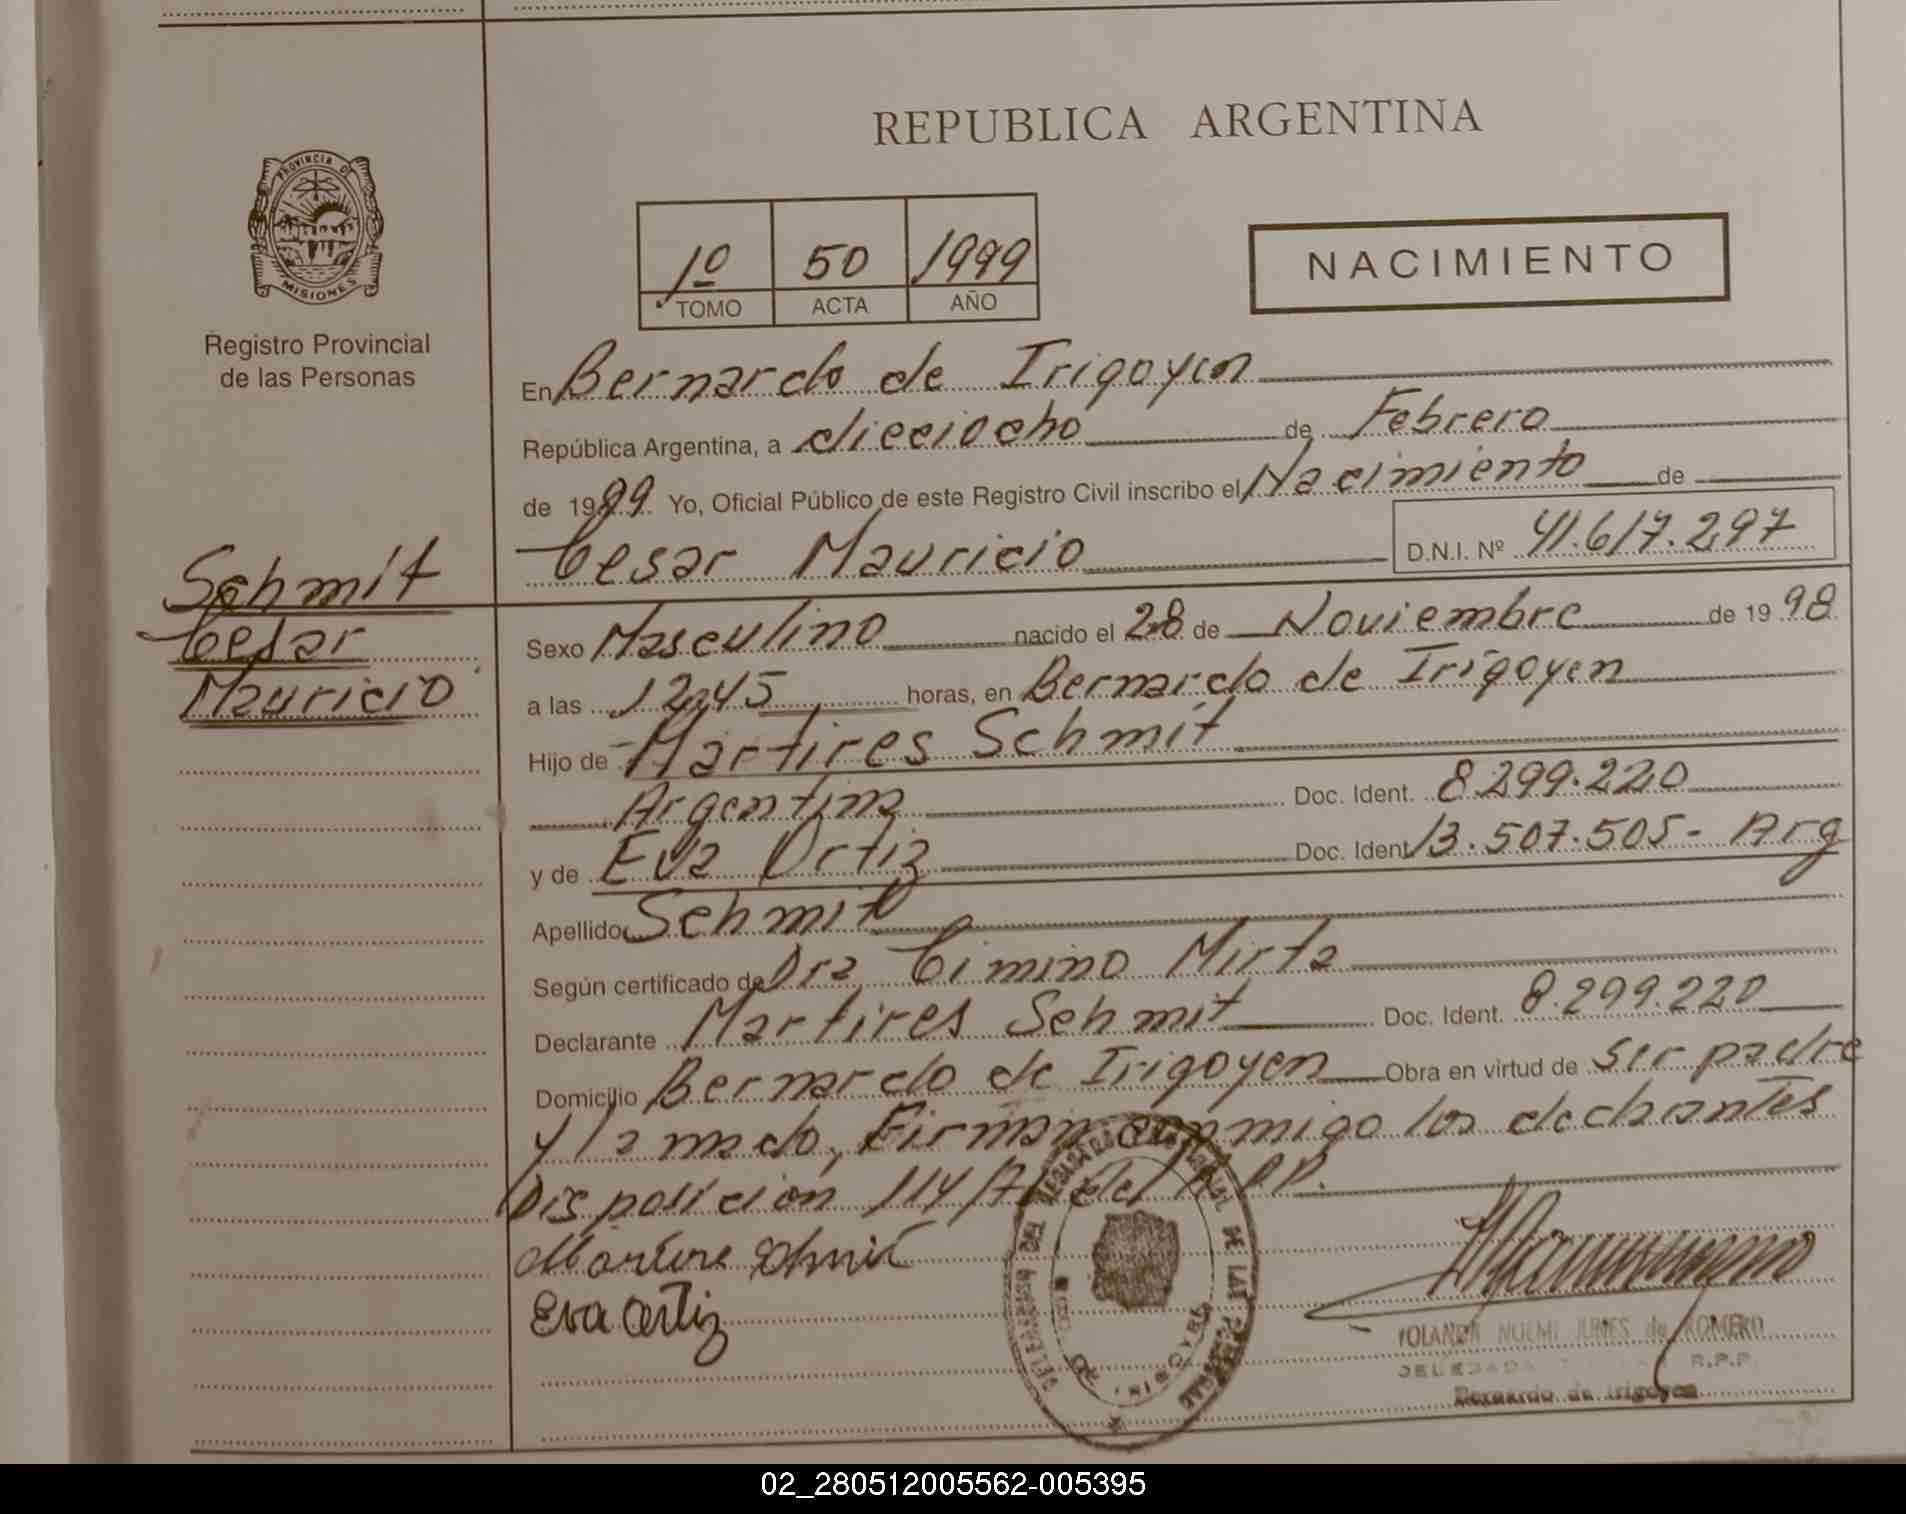 REPUBLICA ARGENTINA
PROVINCIA DE
MISIONES
Registro Provincial
de las Personas
1º 50 1999
TOMO ACTA AÑO
NACIMIENTO
En Bernardo de Irigoyen
República Argentina, a dieciocho de Febrero
de 1999 Yo, Oficial Público de este Registro Civil inscribo el Nacimiento de
Cesar Mauricio D.N.I. Nº 41.617.297
Schmit
Cesar
Mauricio
Sexo Masculino nacido el 28 de Noviembre de 1998
a las 12,45 horas, en Bernardo de Irigoyen
Hijo de Martires Schmit
Argentina Doc. Ident. 8.299.220
y de Eva Ortiz Doc. Ident. 13.507.505- Arg
Apellido Schmit
Según certificado de Dra Cimino Mirta
Declarante Martires Schmit Doc. Ident. 8.299.220
Domicilio Bernardo de Irigoyen Obra en virtud de ser padre
y la madre, Firman conmigo los declarantes
Disposición 114/ del
Martires Schmit
Eva Ortiz
YOLANDA NOEMI JUNES de ROMERO
DELEGADA R.P.P.
Bernardo de Irigoyen
02_280512005562-005395